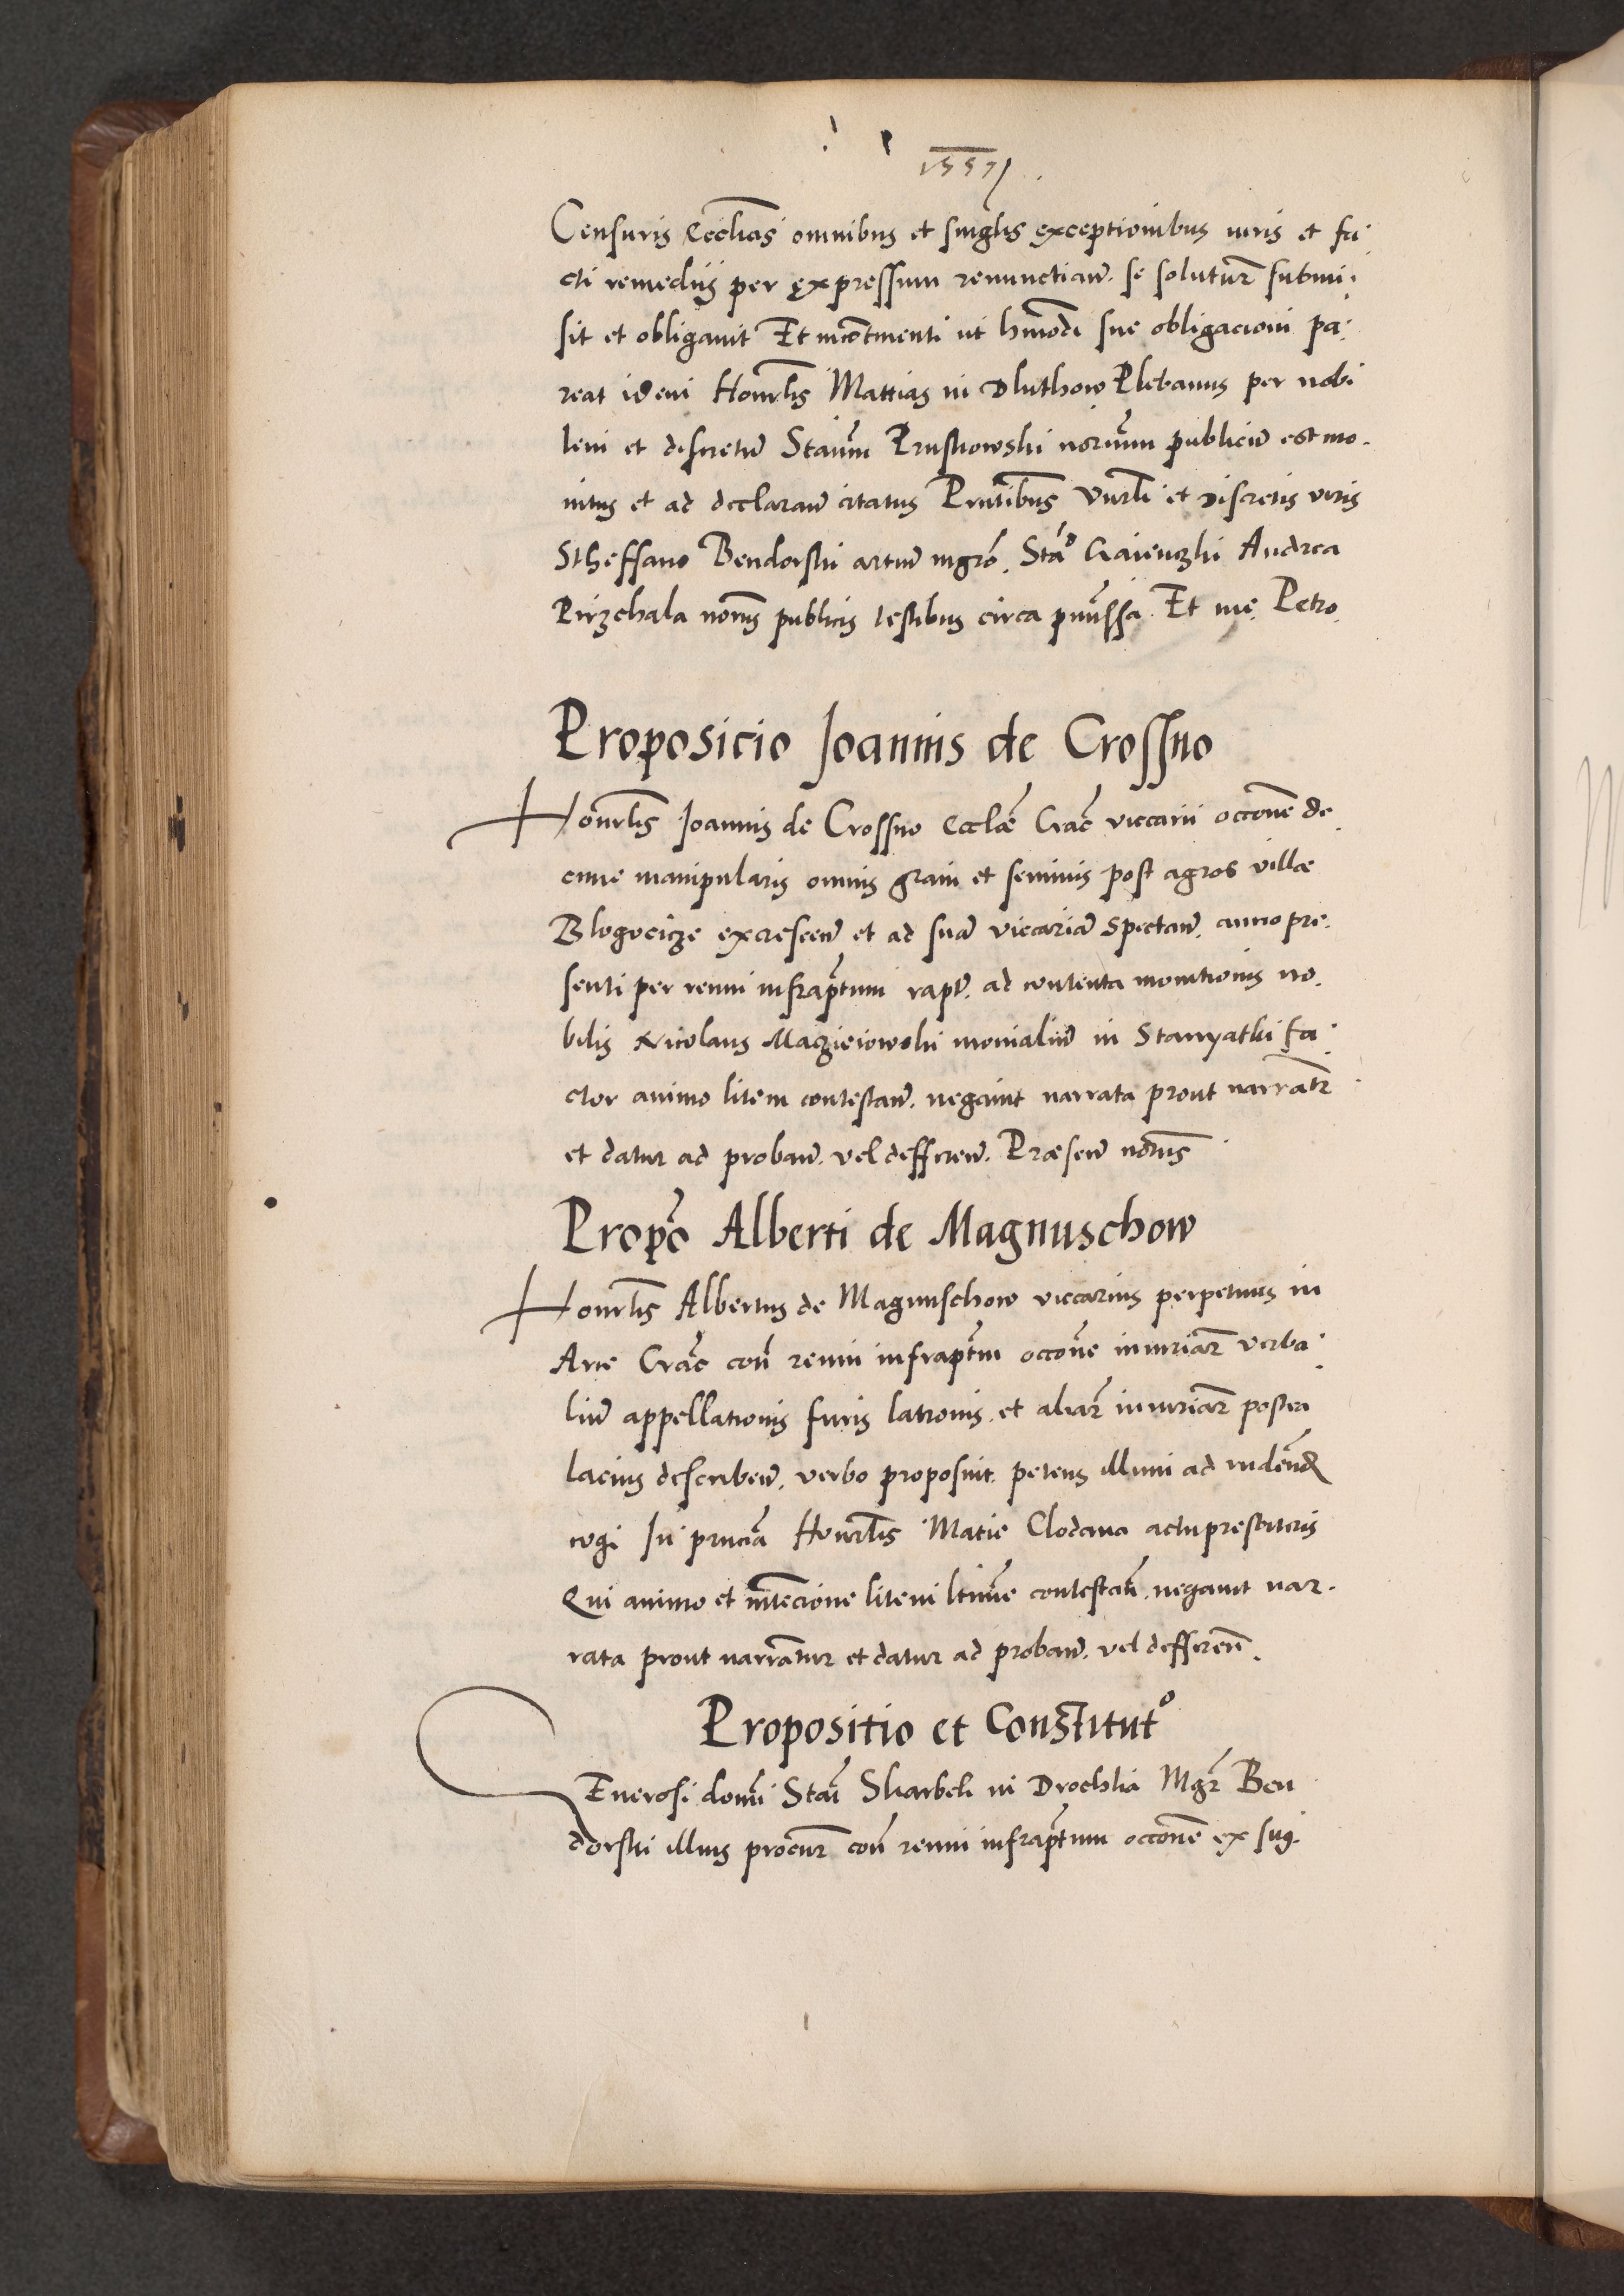 1557
Censuris Ecclias omnibus et singlis exceptionibus iuris et fa
cti remediis per expressum renunctian. se solutur submi
sit et obligavit Et incontinenti ut hmodi sue obligacioni pa
reat idem Honrlis Mattias in Dluthow Plebanus per nobi
lem et discretu Stanm Pruskowski notrium publicu est mo
nitus et ad declaran citatus Pntibus vnrli et Discretis viris
Stheffano Bendorski artiu mgro. Sta Andrea
Pirzchala notriis publicis testibus circa pmissa. Et me Petro.
Proposicio Joannis de Crossno
Honrlis Joannis de Crossno Ecclae Crac viccarii occone de
cime manipularis omnis grani et seminis post agros villae
Blogocicze excrescen et ad sua viccaria spectan. anno pre
senti per reum infraptum rapt. ad contenta monitionis no
bilis Nicolaus Maczieiowski monialiu in Stanyatki fa
ctor animo litem contestan. negavit narrata prout narratr
et datur ad proban. vel defferen. Praesen notriis
Propo Alberti de Magnuschow
Honrlis Albertus de Magnuschow viccarius perpetuus in
Arce Crac con reum infraptum occone iniuriar verba
liu appellationis furis latronis. et aliar iniuriar postea
lacius describen. verbo proposuit. petens illum ad
cogi In pncia Honrlis Matie Clodawa actu presbiteris
Qui animo et intencione litem ltime contestan. negavit nar
rata prout narrantur et datur ad proban. vel defferen.
Propositio et Constitut°
Generosi domi Stai Skarbek in Drochlia Mgr Ben
dorski illius procur con reum infraptum occone ex sui